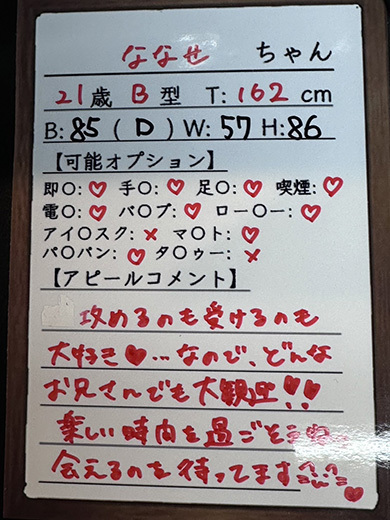 ななせ ちゃん
21歳 B型 T:162cm
B:85(D)W:57H:86
【可能オプション】
即〇:♡ 手〇:♡ 足〇:♡ 喫煙:♡
電〇:♡ バ〇ブ:♡ ロー〇ー:♡
アイ〇スク:× マ〇ト:♡
パ〇パン:♡ タ〇ゥー:×
【アピールコメント】
攻めるのも受けるのも
大好き♥…なので、どんな
お兄さんでも大歓迎!!
楽しい時間を過ごそうね
会えるのを待ってます